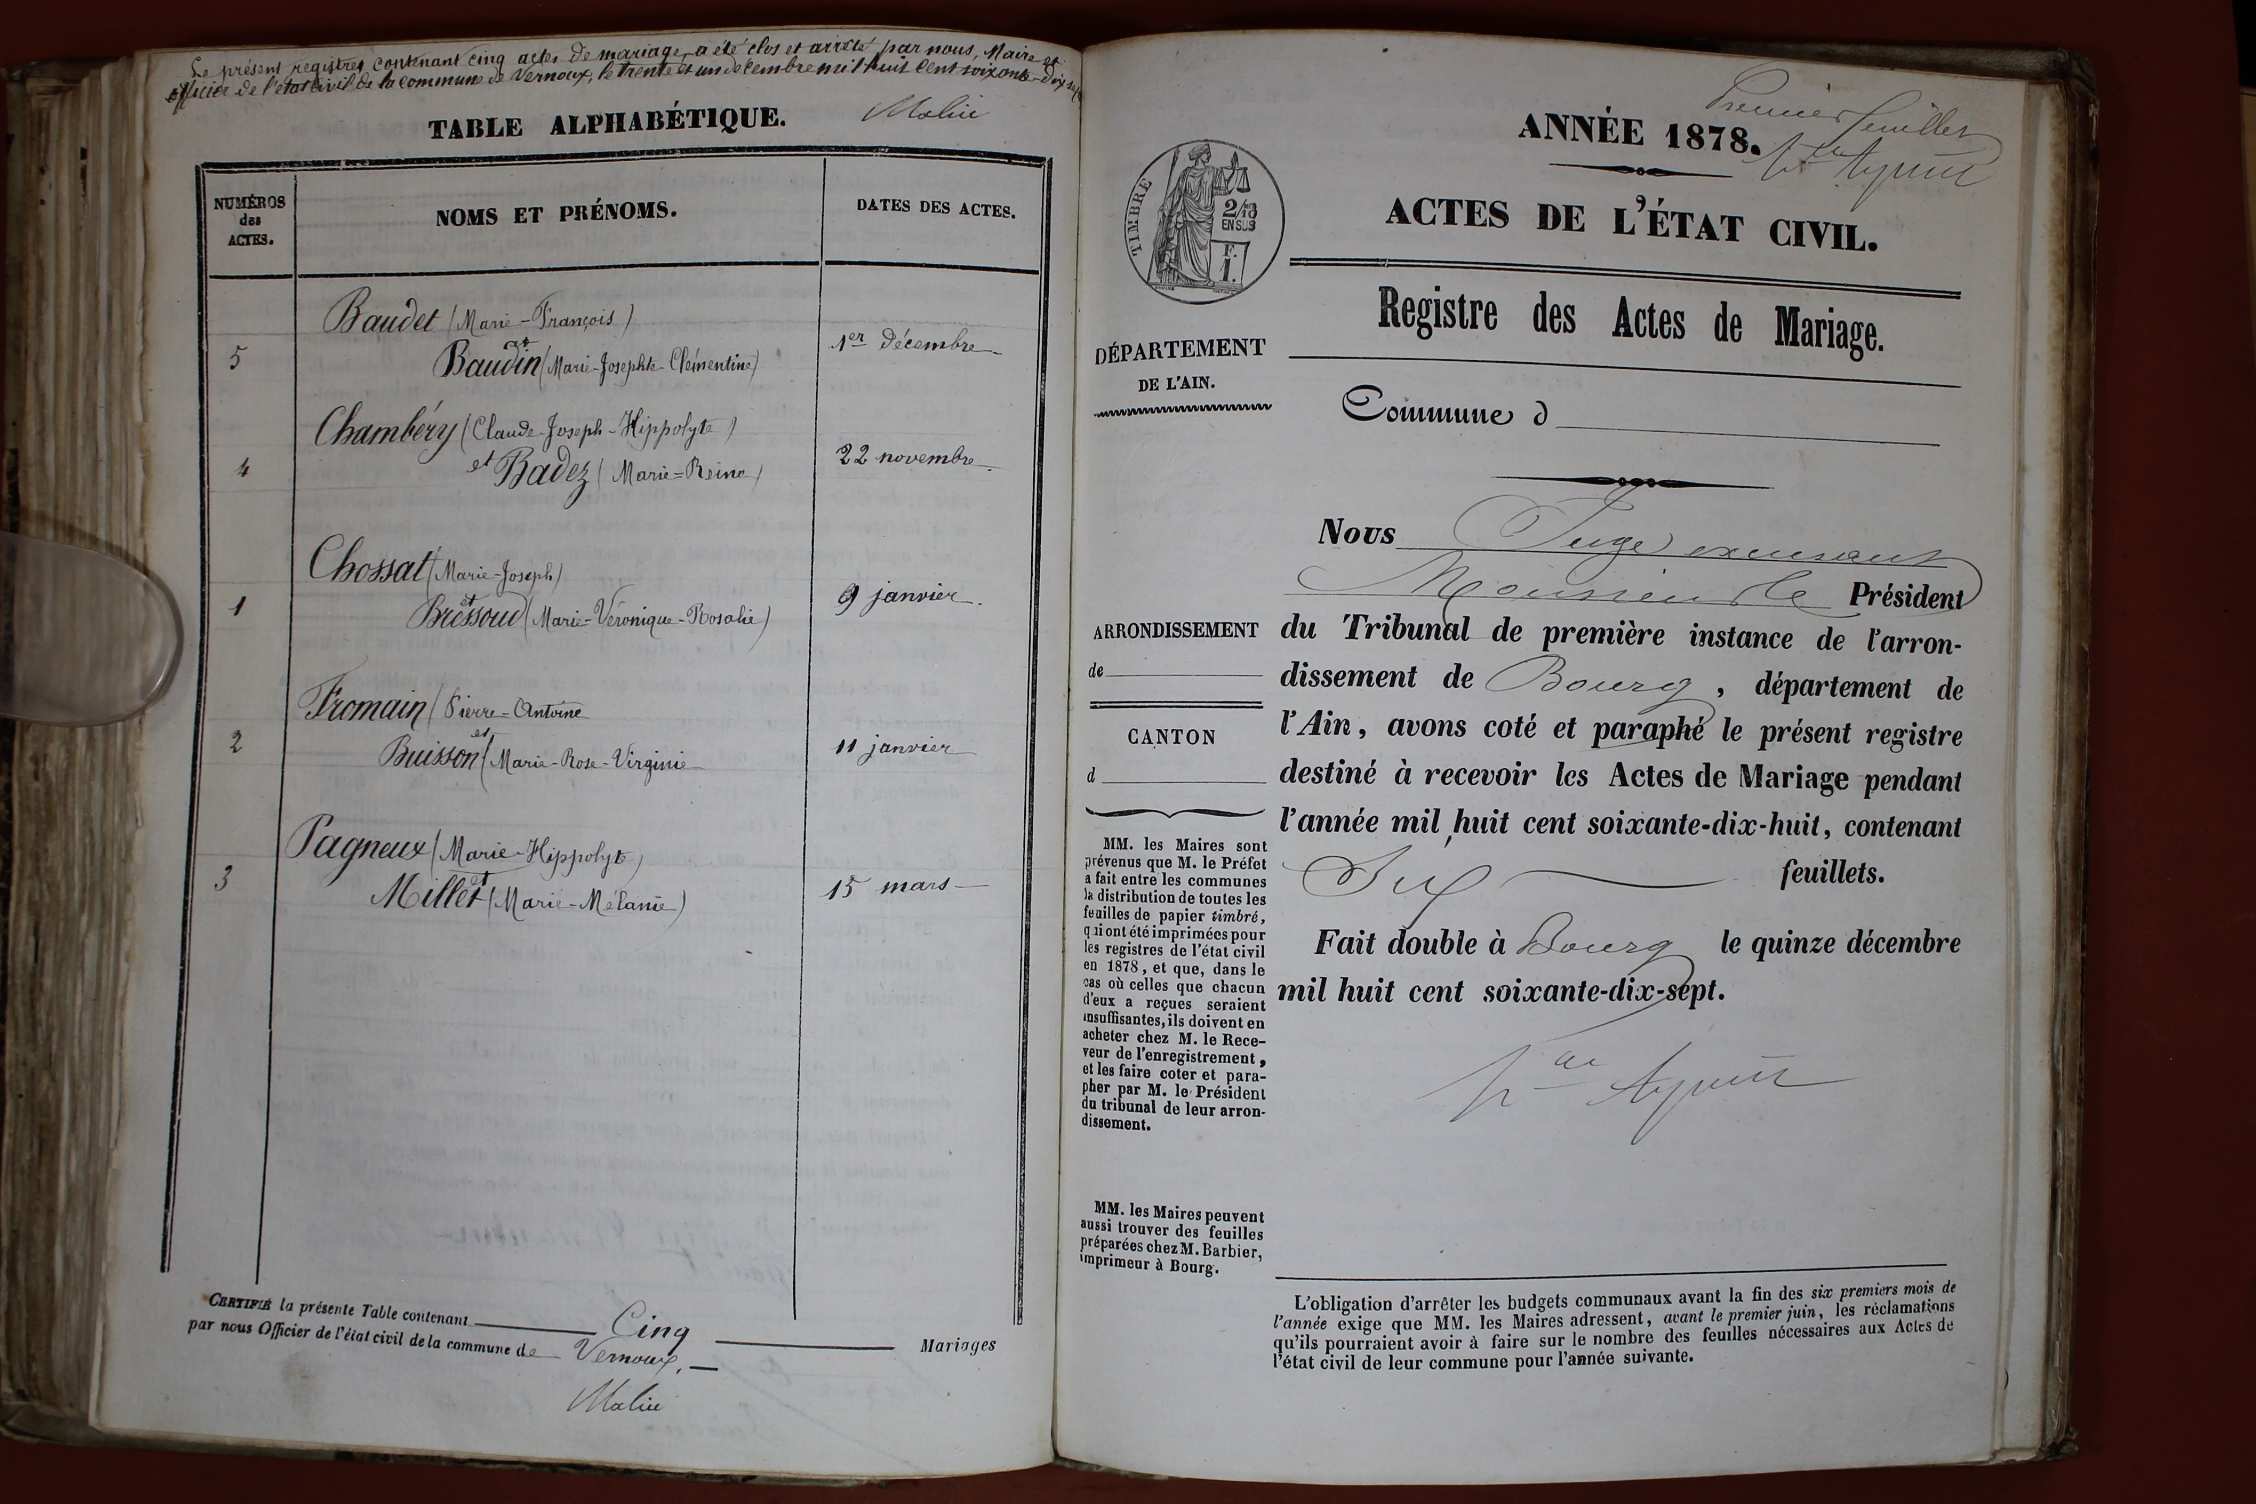 Le présent registre contenant cinq actes de mariage, a été clos et arrêté par nous, Maire et
officier de l'état civil de la commune de Vernoux, le trente et un décembre mil huit cent soixante-dix
TABLE ALPHABÉTIQUE.
NUMÉROS des ACTES.
NOMS ET PRÉNOMS.
DATES DES ACTES.
Baudet (Marie-François)
et
5 Baudin (Marie-Josephte-Clémentine) 1er décembre
Chambéry (Claude-Joseph-Hippolyte)
4 et Badez (Marie=Reine) 22 novembre
Chossat (Marie-Joseph)
et
1 Bressoud (Marie-Véronique-Rosalie) 9 janvier.
Fromain (Pierre-Antoine
et
2 Buisson (Marie-Rose-Virginie 11 janvier
Pagneux (Marie-Hippolyte)
et
3 Millet (Marie-Mélanie) 15 mars
CERTIFIÉ la présente Table contenant Cinq Mariages
par nous Officier de l'état civil de la commune de Vernoux.
Premier feuillet
ANNÉE 1878.
ACTES DE L'ÉTAT CIVIL.
TIMBRE
2/10 EN SUS
F. 1.
Registre des Actes de Mariage.
DÉPARTEMENT
DE L'AIN.
Commune d
Nous Juge
Monsieur le Président
ARRONDISSEMENT
de
CANTON
d
du Tribunal de première instance de l'arron-
dissement de Bourg, département de
l'Ain, avons coté et paraphé le présent registre
destiné à recevoir les Actes de Mariage pendant
l'année mil huit cent soixante-dix-huit, contenant
Six feuillets.
Fait double à Bourg le quinze décembre
mil huit cent soixante-dix-sept.
MM. les Maires sont
prévenus que M. le Préfet
a fait entre les communes
la distribution de toutes les
feuilles de papier timbré,
qui ont été imprimées pour
les registres de l'état civil
en 1878, et que, dans le
cas où celles que chacun
d'eux a reçues seraient
insuffisantes, ils doivent en
acheter chez M. le Rece-
veur de l'enregistrement,
et les faire coter et para-
pher par M. le Président
du tribunal de leur arron-
dissement.
MM. les Maires peuvent
aussi trouver des feuilles
préparées chez M. Barbier,
imprimeur à Bourg.
L'obligation d'arrêter les budgets communaux avant la fin des six premiers mois de
l'année exige que MM. les Maires adressent, avant le premier juin, les réclamations
qu'ils pourraient avoir à faire sur le nombre des feuilles nécessaires aux Actes de
l'état civil de leur commune pour l'année suivante.